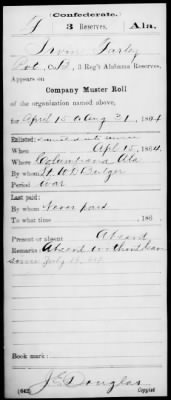 Confederate.
F 3 Reserves, Ala.
Irvin Farley
Pvt, Co. B, 3 Reg't Alabama Reserves.
Appears on
Company Muster Roll
of the organization named above,
for April 15 to Aug 31, 1864
Enlisted:
When Apl 15, 1864.
Where Columbiana Ala
By whom W D Bulger
Period war
Last paid:
By whom Never paid
To what time , 186 .
Present or absent Absent
Remarks: Absent without leave
since July
Book mark:
J E Douglas
(642) Copyist